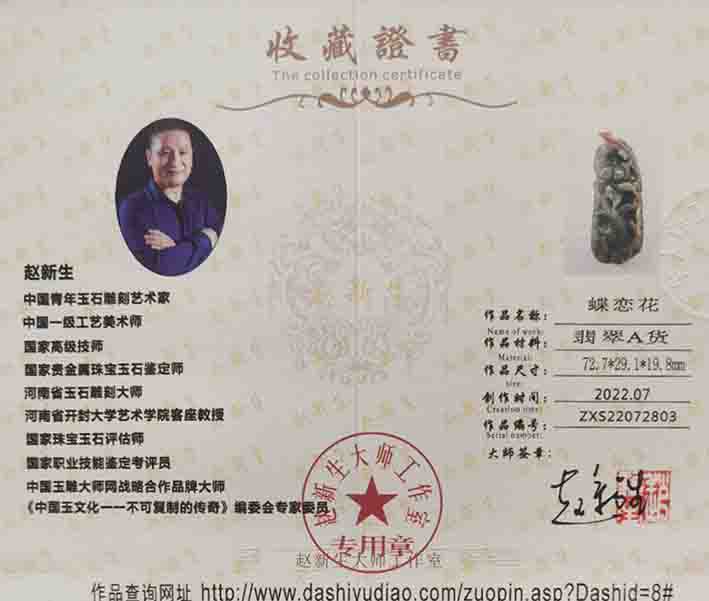 收藏證書
The collection certificate
赵新生
中国青年玉石雕刻艺术家
中国一级工艺美术师
国家高级技师
国家贵金属珠宝玉石鉴定师
河南省玉石雕刻大师
河南省开封大学艺术学院客座教授
国家珠宝玉石评估师
国家职业技能鉴定考评员
中国玉雕大师网战略合作品牌大师
《中国玉文化一一不可复制的传奇》编委会专家委员
作品名称： 蝶恋花
Name of work:
作品材料： 翡翠A货
Material:
作品尺寸： 72.7*29.1*19.8mm
size:
创作时间： 2022.07
Creation time:
作品编号： ZXS22072803
Serial number:
大师签章：
赵新生
赵新生大师工作室
专用章
赵新生大师工作室
作品查询网址 http://www.dashiyudiao.com/zuopin.asp?Dashid=8#